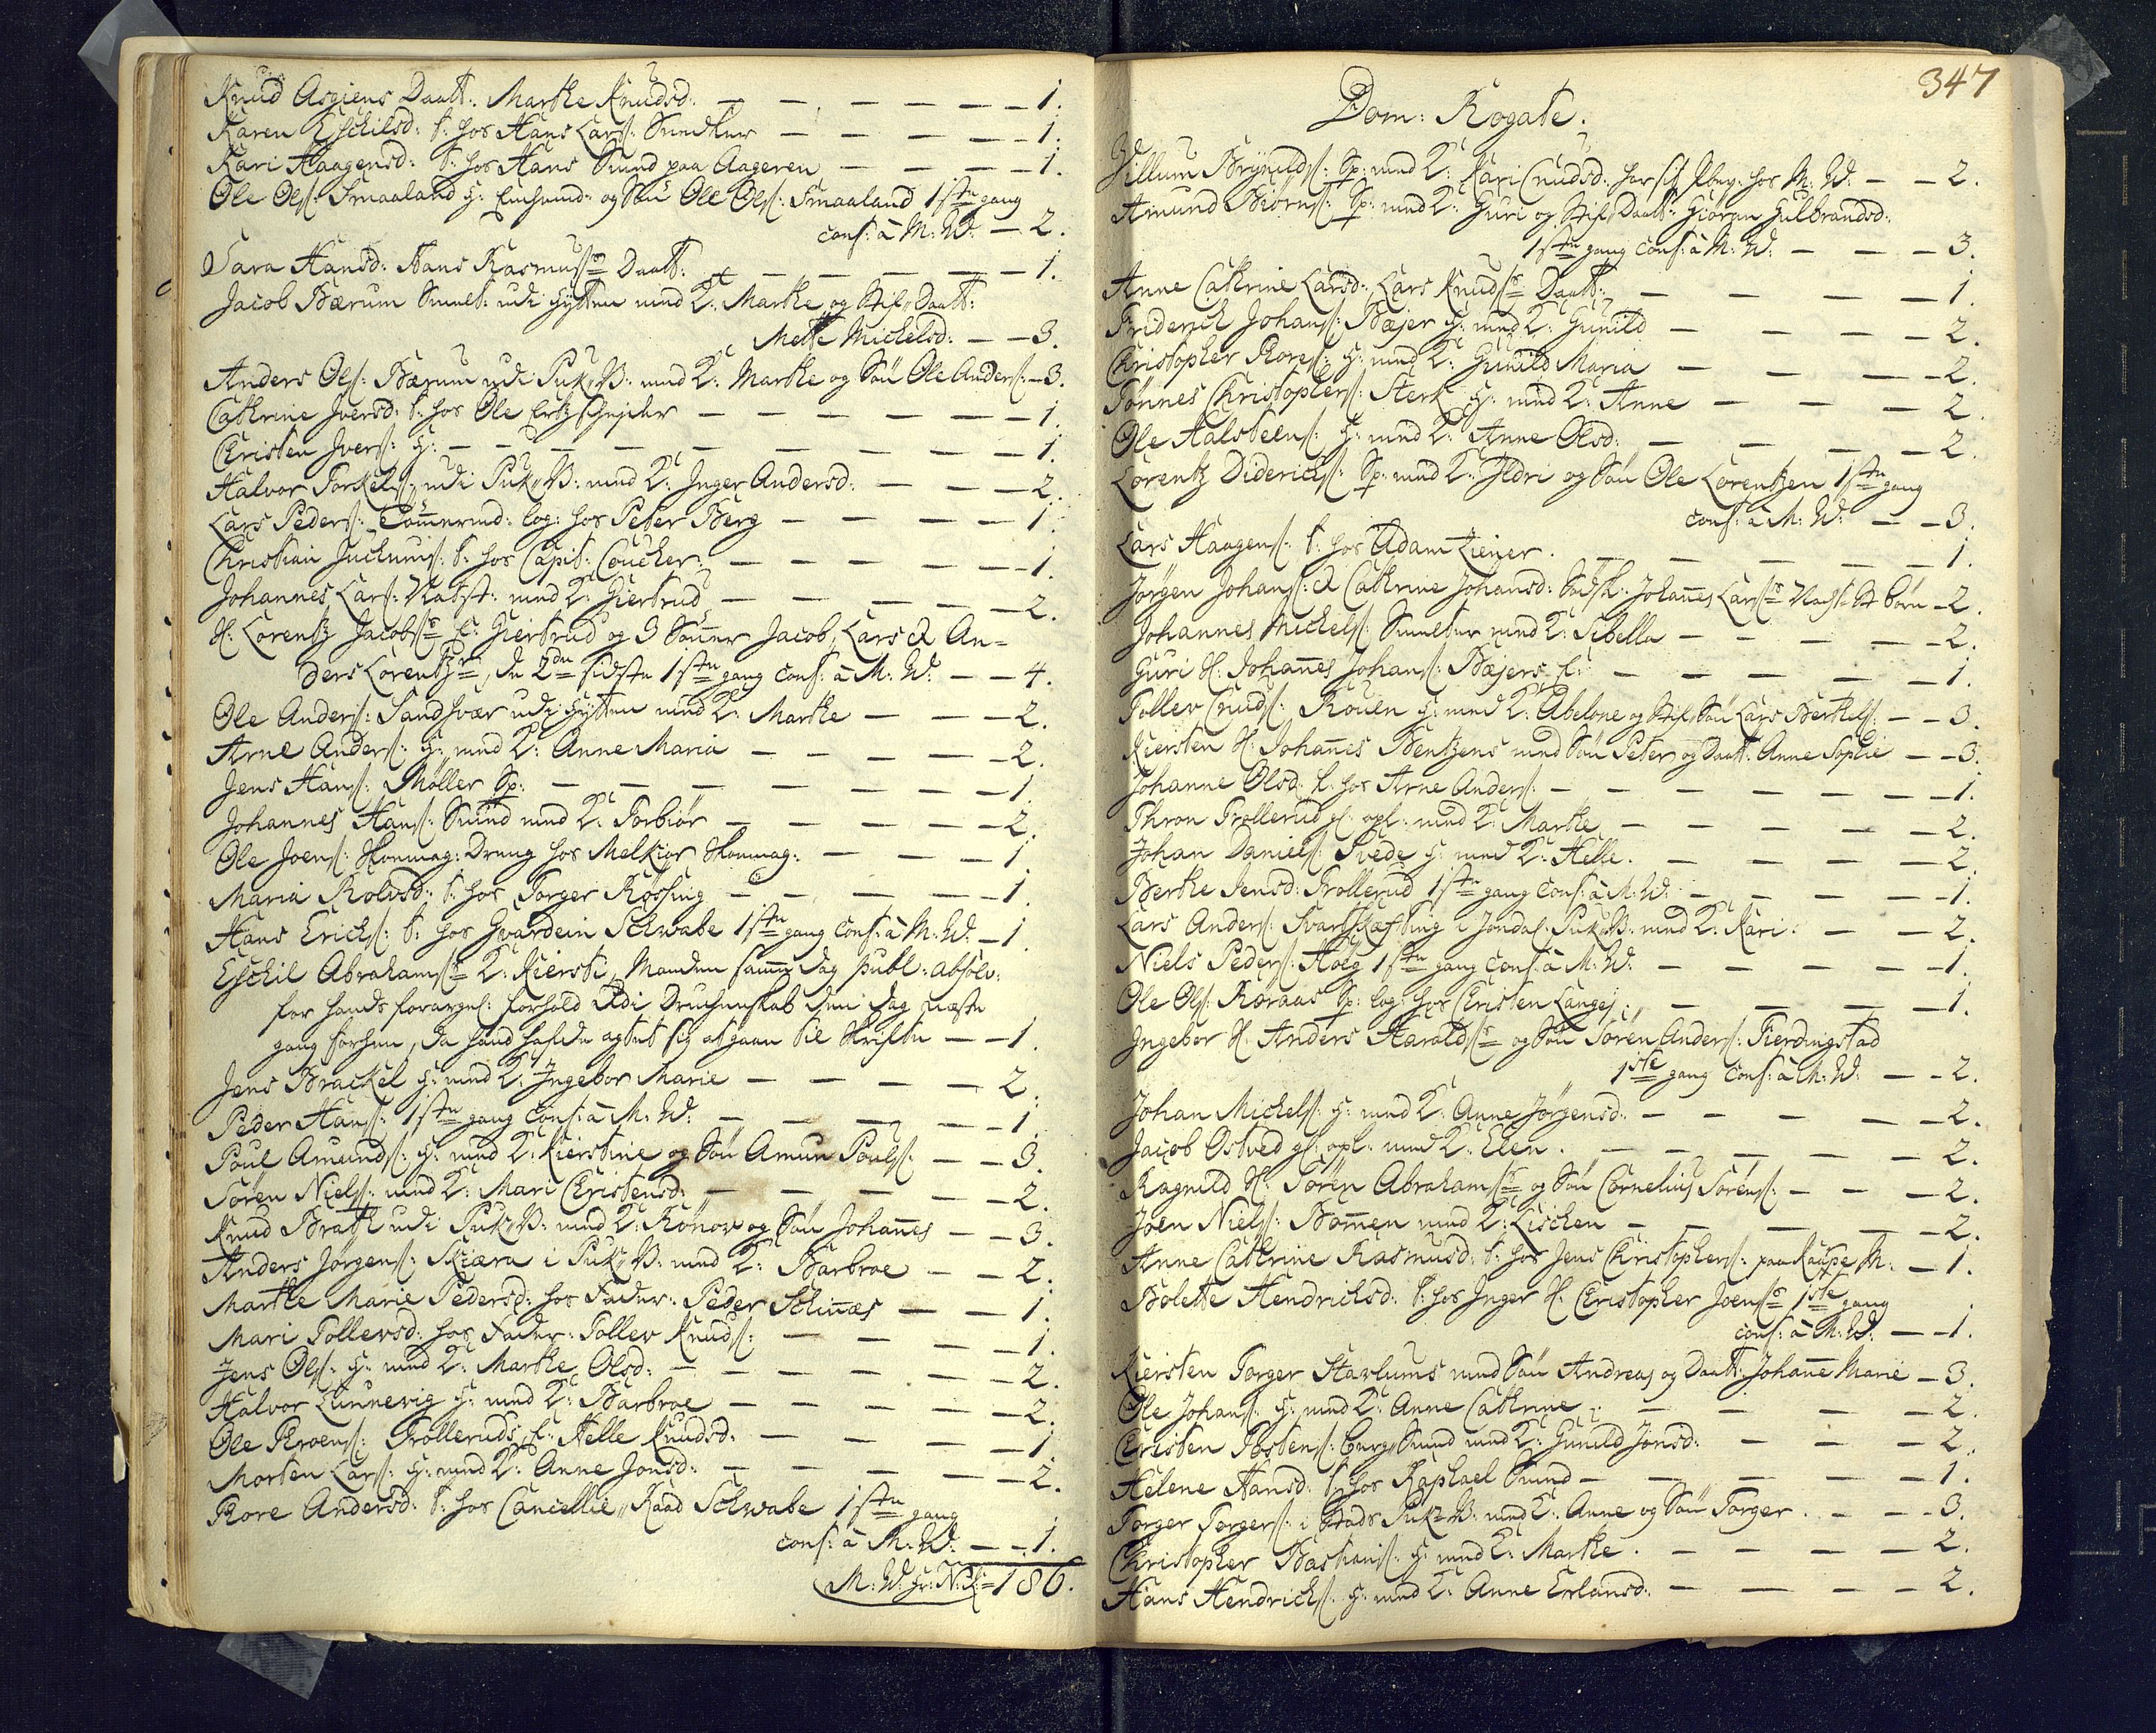 Knud Asgiens Daatt: Marthe Knudsd: — — — — — — 1.
Karen Eschilsd: t: hos Hans Lars: Snedker — — — — — 1.
Kari Haagensd: t: hos Hans Smed paa Aageren — — — — 1.
Ole Ols: Smaaland og Søn Ole Ols: Smaaland 1ste gang
conf: à M: W: — 2.
Sara Hansd: Hans Rasmuss: Daatt: — — — — — 1.
Jacob Bærum Smelt: udi Hytten med K: Marthe og Stif Daatt:
Mette Michelsd: — — 3.
Anders Ols: Bærum udi Puk V: med K: Marthe og Søn Ole Anders: — 3.
Cathrine Iversd: t: hos Ole Ertzscheider — — — — — 1.
Christen Ivers: G: — — — — — — — 1.
Halvor Torkels: udi Puk V: med K: Inger Andersd: — — — 2.
Lars Peders: Tømmermd: log: hos Peter Berg — — — — 1.
Christian t: hos Capit: Coucher: — — — — — 1.
Johannes Lars: med K: Giertrud — — — — — 2.
H: Lorentz Jacobs: E: Giertrud og 3 Sønner Jacob, Lars & An-
ders Lorentz, de 2de sidste 1ste gang conf: à M: W: — — 4.
Ole Anders: Sandsvær udi Hytten med K: Marthe — — — 2.
Arne Anders: G: med K: Anne Maria — — — — 2.
Jens Hans: Møller Sp: — — — — — — 1.
Johannes Hans: Smed med K: Torbiør — — — — — 2.
Ole Joens: Skoemag: Dreng hos Melkior Skoemag: — — — 1.
Maria Rolvsd: t: hos Torger Røssing — — — — — 1.
Hans Erichs: t: hos Gvardein Schwabe 1ste gang conf: à M: W: — 1.
Eschil Abrahams: K: Kiersti, Manden samme Dag publ: absolv:
for hands forargel: forhold udi Druchenskab den Dag næste
gang forhen, da hand hafde agtet sig at gaae til Skrifte — — 1.
Jens Brackel G: med K: Ingebor Marie — — — — 2.
Peder Hans: 1ste gang conf: à M: W: — — — — 1.
Poul Amunds: G: med K: Kierstine og Søn Amun Pouls: — — 3.
Søren Niels: med K: Mari Christensd: — — — — 2.
Knud Brath udi Puk V: med K: Rønow og Søn Johannes — — 3.
Anders Jørgens: Skiæra i Puk V: med K: Barbroe — — 2.
Marthe Marie Pedersd: hos Fader: Peder Schinnæs — — 1.
Mari Tollevsd: hos Fader: Tollev Knuds: — — — 1.
Jens Ols: G: med K: Marthe Olsd: — — — — — 2.
Halvor Lunnevig G: med K: Barbroe — — — — — 2.
Ole Throens: Trolleruds E: Helle Knudsd: — — — — 1.
Morten Lars: G: med K: Anne Jonsd: — — — — — 2.
Thore Andersd: t: hos Cancellie Raad Schwabe 1ste gang
conf: à M: W: — — 1.
M: W: 186.
347
Dom: Rogate.
Villum Brynilds: Sp: med K: Kari Cnudsd: hos M: W: — — 2.
Amund Biørns: Sp: med K: Guri og Stif Daatt: Giøran Gulbrandsd:
1ste gang conf: à M: W: — — — 3.
Anne Cathrine Larsd: Lars Knuds: Daatt: — — — — 1.
Friderich Johans: Bejer G: med K: Gunild — — — — 2.
Christopher Thores: G: med K: Gunild Maria — — — — 2.
Tønnes Christophers: Sterk G: med K: Anne — — — — 2.
Ole Halsteens: G: med K: Anne Olsd: — — — — 2.
Lorentz Diderichs: Sp: med K: Ildri og Søn Ole Lorentzen 1ste gang
conf: à M: W: — — 3.
Lars Haagens: t: hos Adam Ziener. — — — — — 1.
Jørgen Johans: & Cathrine Johansd: Johannes Larss: Børn — 2.
Johannes Michels: Smelter med K: Sibella — — — — — 2.
Guri H: Johannes Johans: Bejers E: — — — — — 1.
Tollev Cnuds: Rouen G: med K: Abelone og Stif Søn Lars Berthels: — — 3.
Kiersten H: Johannes Bentzens med Søn Peter og Daatt: Anne Sophie — — 3.
Johanne Olsd: t: hos Arne Anders: — — — — — — 1.
Thron Trollerud gl: opl: med K: Marthe — — — — — 2.
Johan Daniels: Svede G: med K: Helle. — — — — — 2.
Berthe Jensd: Trollerud 1ste gang conf: à M: W: — — — — 1.
Lars Anders: Svartskæfting i Jondal Puk V: med K: Kari. — — 2.
Niels Peders: Hoeg 1ste gang conf: à M: W: — — — — — 1.
Ole Ols: Røraas Sp: log: hos Christen Langej. — — — — 1.
Ingebor H: Anders Haralds: og Søn Søren Anders: Fierdingstad
1ste gang conf: à M: W: — — 2.
Johan Michels: G: med K: Anne Jørgensd: — — — — — 2.
Jacob Ostved gl: opl: med K: Elen. — — — — — 2.
Ragnild H: Søren Abrahams: og Søn Cornelius Sørens: — — — 2.
Joen Niels: Bommen med K: Lischen — — — — 2.
Anne Cathrine Rasmusd: t: hos Jens Christophers: paa M: — 1.
Bolette Hendrichsd: t: hos Inger H: Christopher Joens: 1ste gang
conf: à M: W: — — 1.
Kiersten Torger Starlums med Søn Andreas og Daatt: Johanne Marie — 3.
Ole Johans: G: med K: Anne Cathrine. — — — — 2.
Christen Tostens: Berg Smed med K: Gunild Jonsd: — — — 2.
Helene Hansd: t: hos Raphael Smed — — — — — 1.
Torger Torgers: i Puk V: med K: Anne og Søn Torger. — — — 3.
Christopher Bastians: G: med K: Marthe. — — — — — 2.
Hans Hendrichs: G: med K: Anne Erlansd: — — — — — 2.